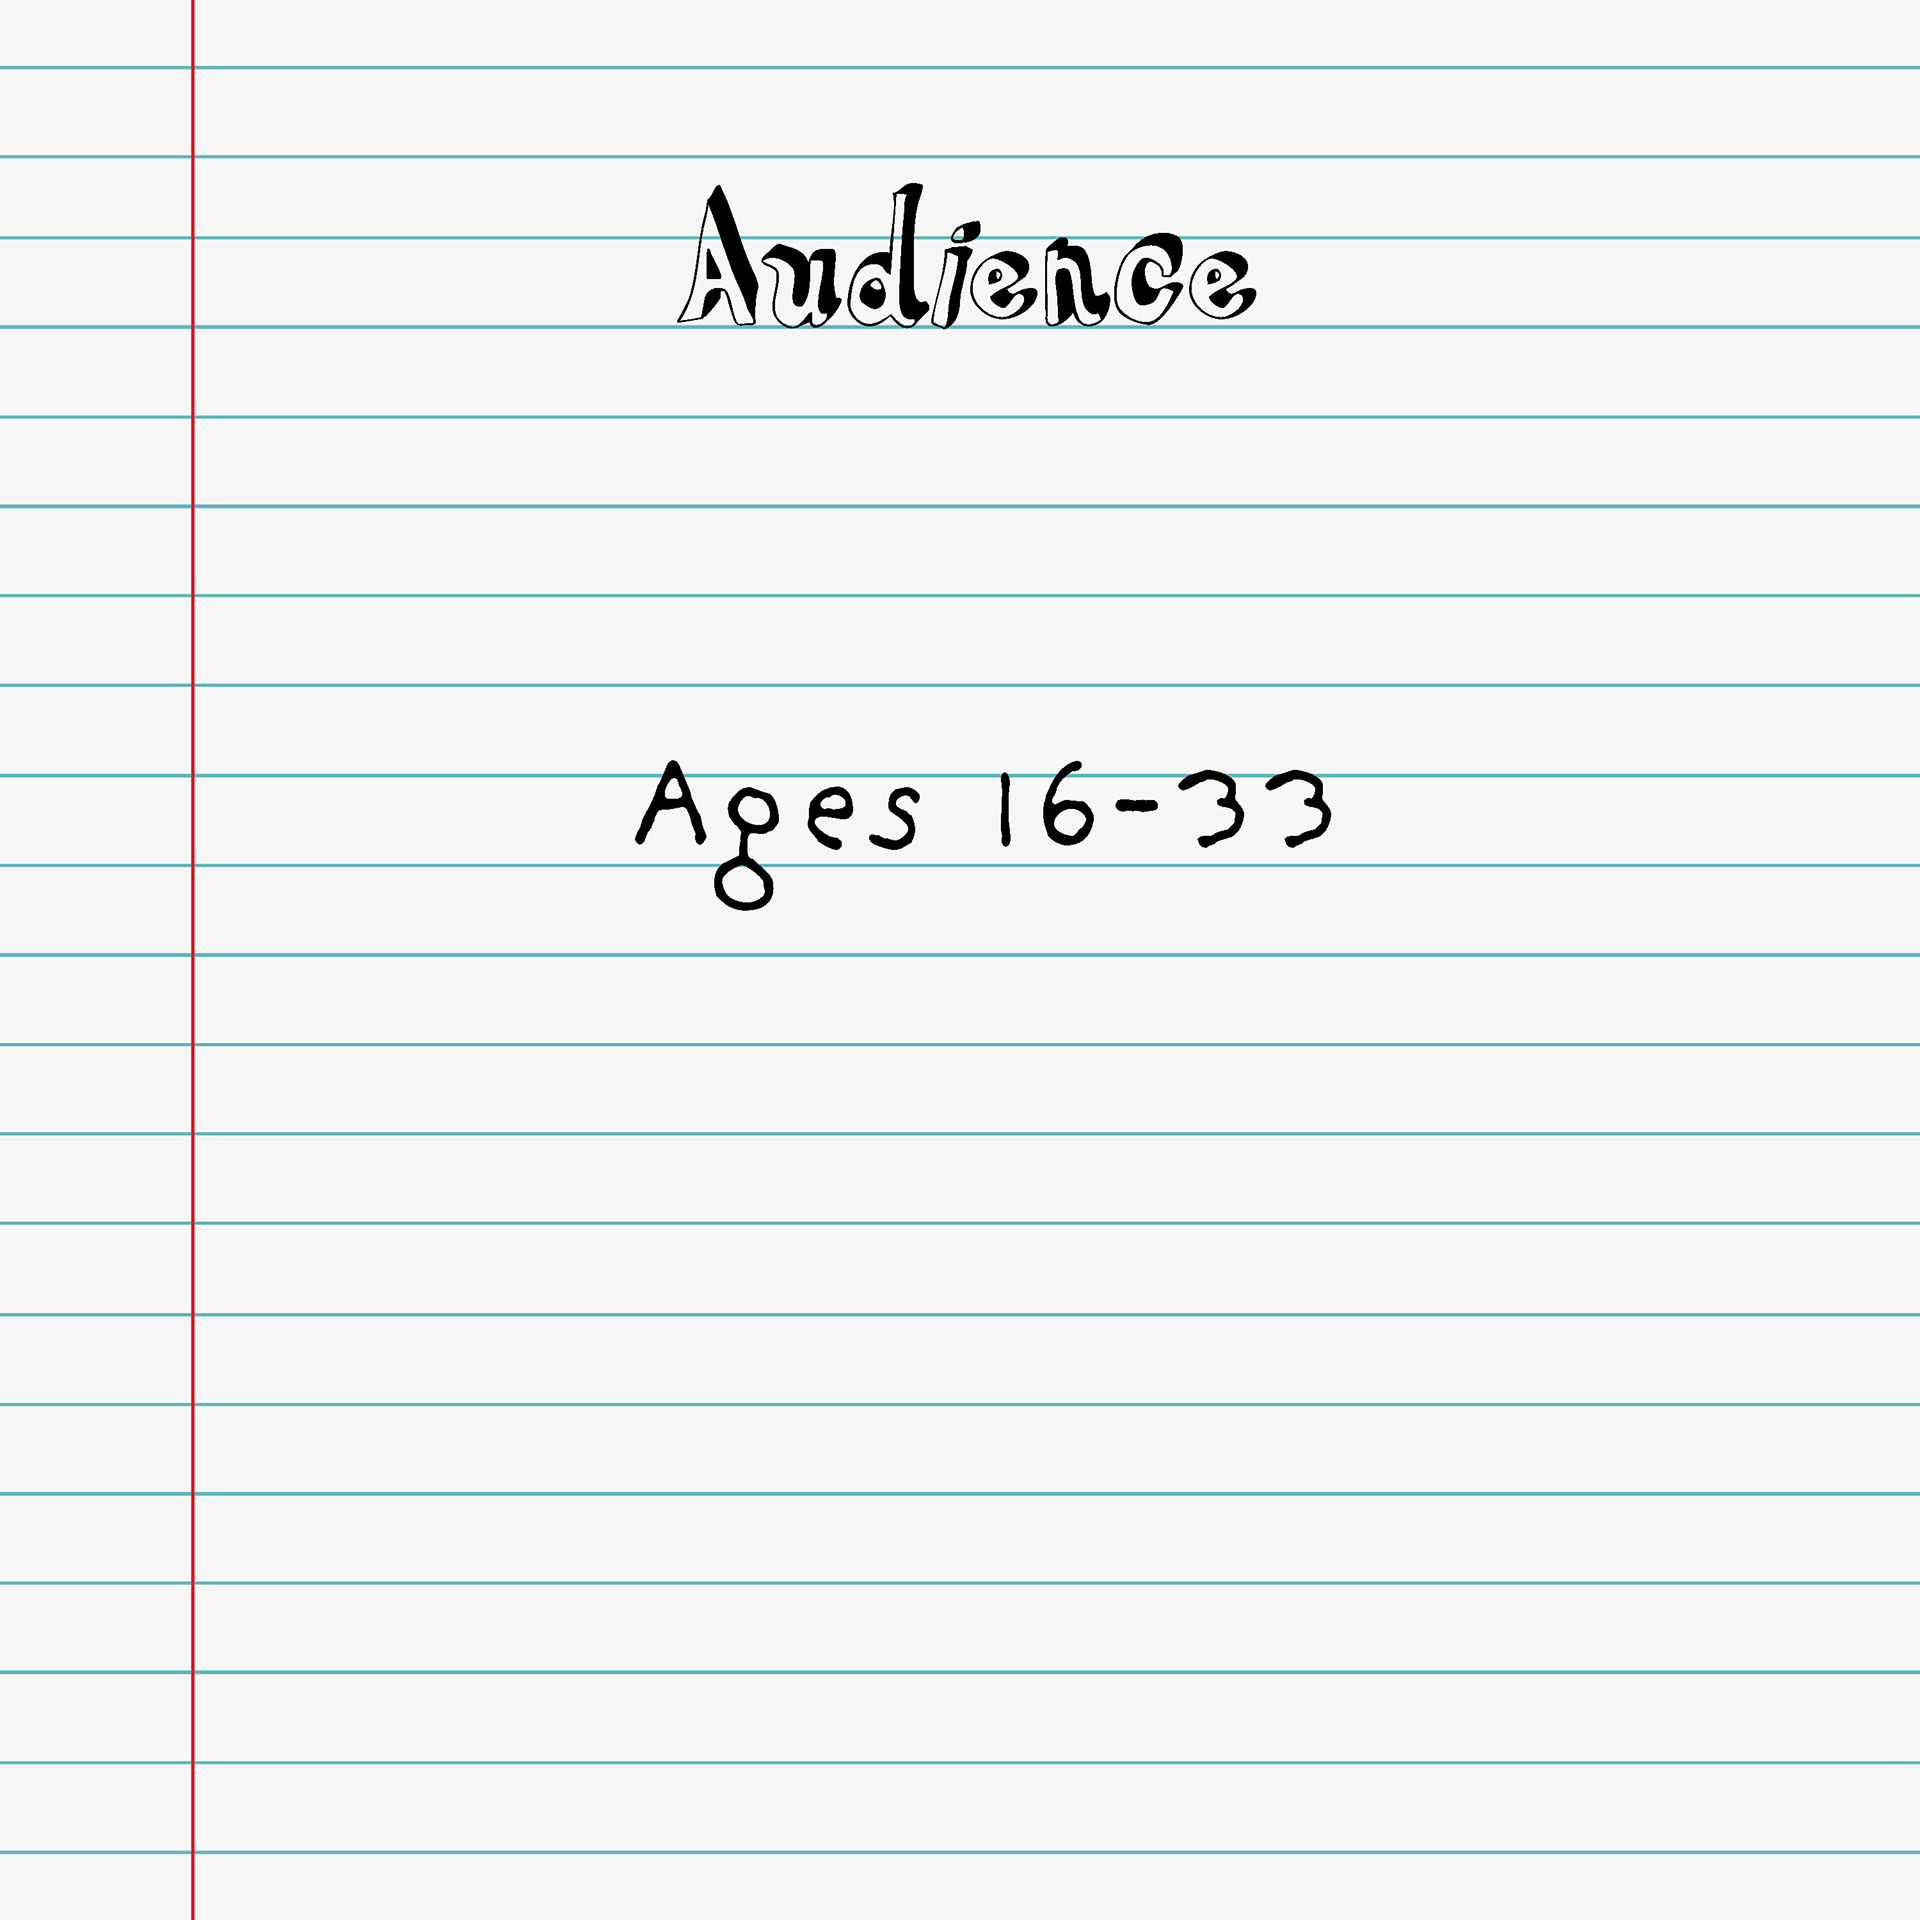 Audience
Ages 16-33